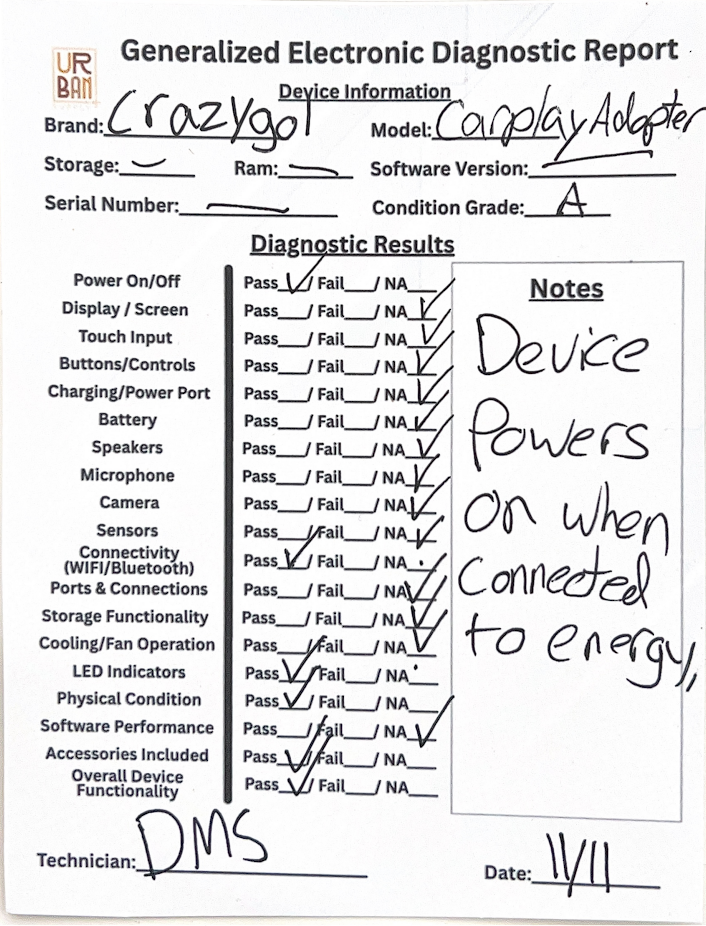 UR
BAN
Generalized Electronic Diagnostic Report
Device Information
Brand: Crazygol Model: Carplay Adapter
Storage: — Ram: — Software Version: —
Serial Number: — Condition Grade: A
Diagnostic Results
Power On/Off Pass ✓/ Fail___/ NA___
Display / Screen Pass___/ Fail___/ NA ✓
Touch Input Pass___/ Fail___/ NA ✓
Buttons/Controls Pass___/ Fail___/ NA ✓
Charging/Power Port Pass___/ Fail___/ NA ✓
Battery Pass___/ Fail___/ NA ✓
Speakers Pass___/ Fail___/ NA ✓
Microphone Pass___/ Fail___/ NA ✓
Camera Pass___/ Fail___/ NA ✓
Sensors Pass___/ Fail___/ NA ✓
Connectivity
(WIFI/Bluetooth) Pass ✓/ Fail___/ NA___
Ports & Connections Pass___/ Fail___/ NA ✓
Storage Functionality Pass___/ Fail___/ NA ✓
Cooling/Fan Operation Pass___/ Fail___/ NA ✓
LED Indicators Pass ✓/ Fail___/ NA___
Physical Condition Pass ✓/ Fail___/ NA___
Software Performance Pass___/ Fail___/ NA ✓
Accessories Included Pass ✓/ Fail___/ NA___
Overall Device
Functionality Pass ✓/ Fail___/ NA___
Notes
Device
Powers
on when
connected
to energy,
Technician: DMS Date: 11/11